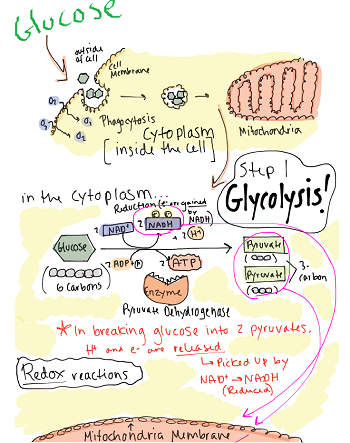 Glucose
outside of cell
Cell Membrane
O₂
O₂
O₂
O₂
Phagocytosis
Cytoplasm
[inside the cell]
Mitochondria
Step 1
Glycolysis!
in the cytoplasm...
Reduction (e⁻ are gained by NADH)
2 NAD⁺
2 NADH
+ 2 H⁺
Glucose
(6 carbons)
2 ADP + P
2 ATP
Enzyme
Pyruvate Dehydrogenase
Pyruvate
Pyruvate
3-carbon
* In breaking glucose into 2 pyruvates,
H⁺ and e⁻ are released
↳ Picked up by
NAD⁺ → NADH
(Reduced)
Redox reactions
Mitochondria Membrane